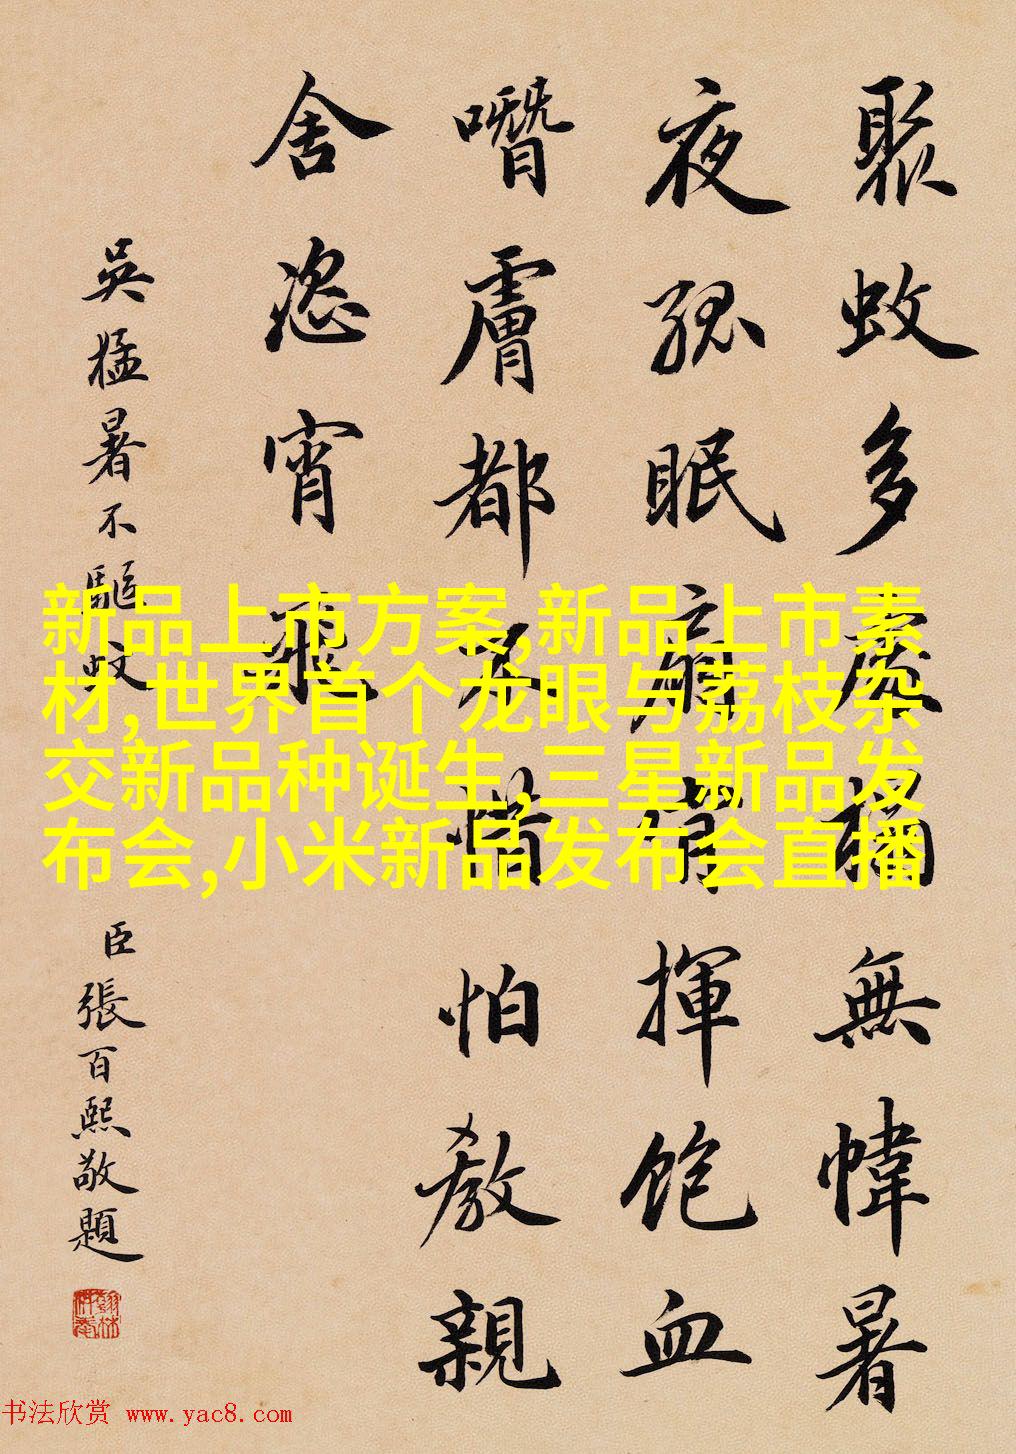 聚蚊多處榻無幃暑
夜孤眠扇揮飽血
噆膚都不惜怕教親
舍恣宵飛
吳猛暑不驅蚊
臣張百熙敬題
新品上市方案,新品上市素
材,世界首个龙眼与荔枝杂
交新品种诞生,三星新品发
布会,小米新品发布会直播
书法欣赏 www.yac8.com